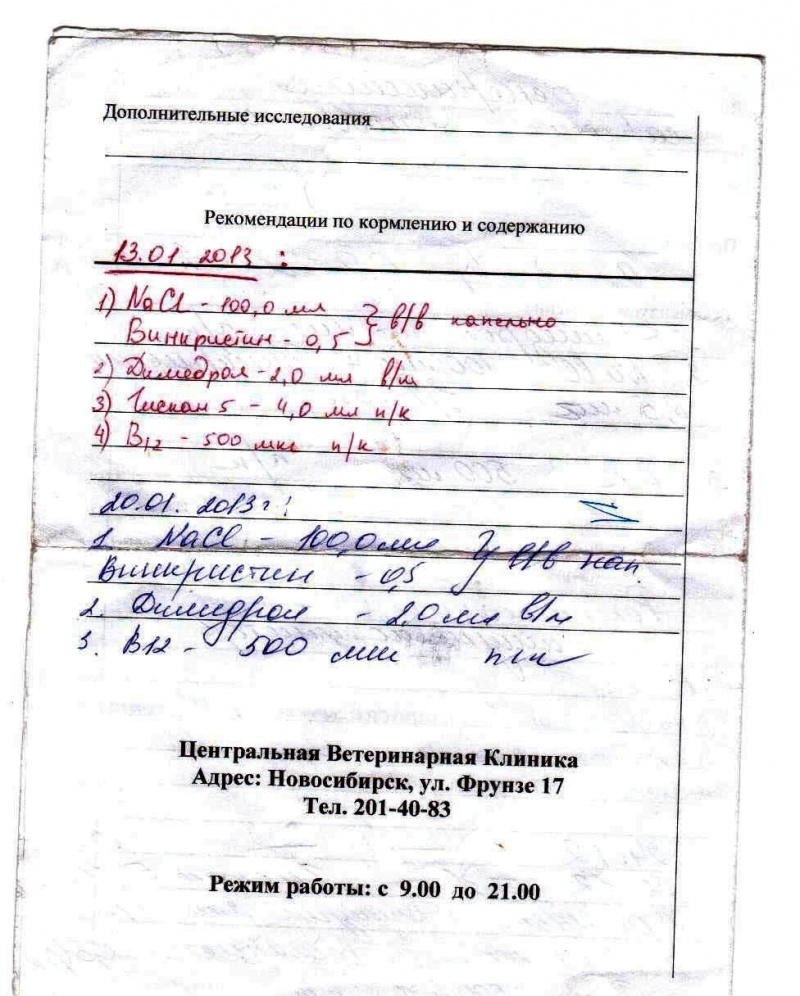 Дополнительные исследования
Рекомендации по кормлению и содержанию
13.01.2013 :
1) NaCl - 100,0 мл } в/в капельно
Винкристин - 0,5
2) Димедрол - 2,0 мл в/м
3) 5 - 4,0 мл п/к
4) B12 - 500 мкг п/к
20.01.2013 г!
1. NaCl - 100,0 мл } в/в кап.
Винкристин - 0,5
2. Димедрол - 2,0 мл в/м
3. В12 - 500 п/к
Центральная Ветеринарная Клиника
Адрес: Новосибирск, ул. Фрунзе 17
Тел. 201-40-83
Режим работы: с 9.00 до 21.00